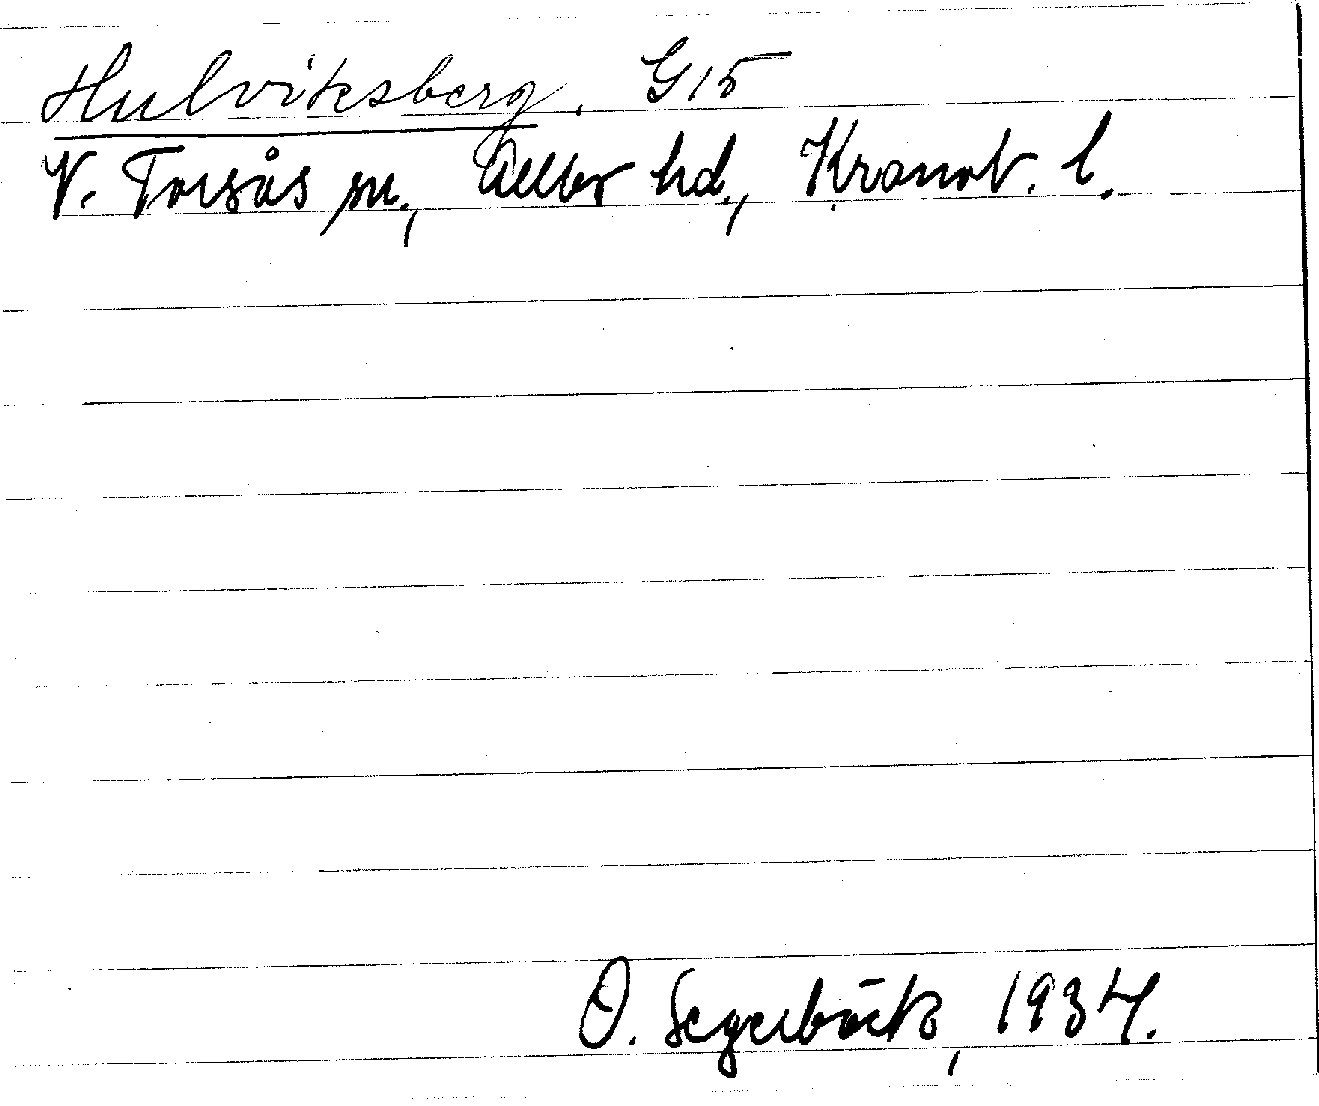 Hulviksberg. G15
V. Torsås sn., Allbo hd., Kronob. l.
O. Segerbäck, 1934.